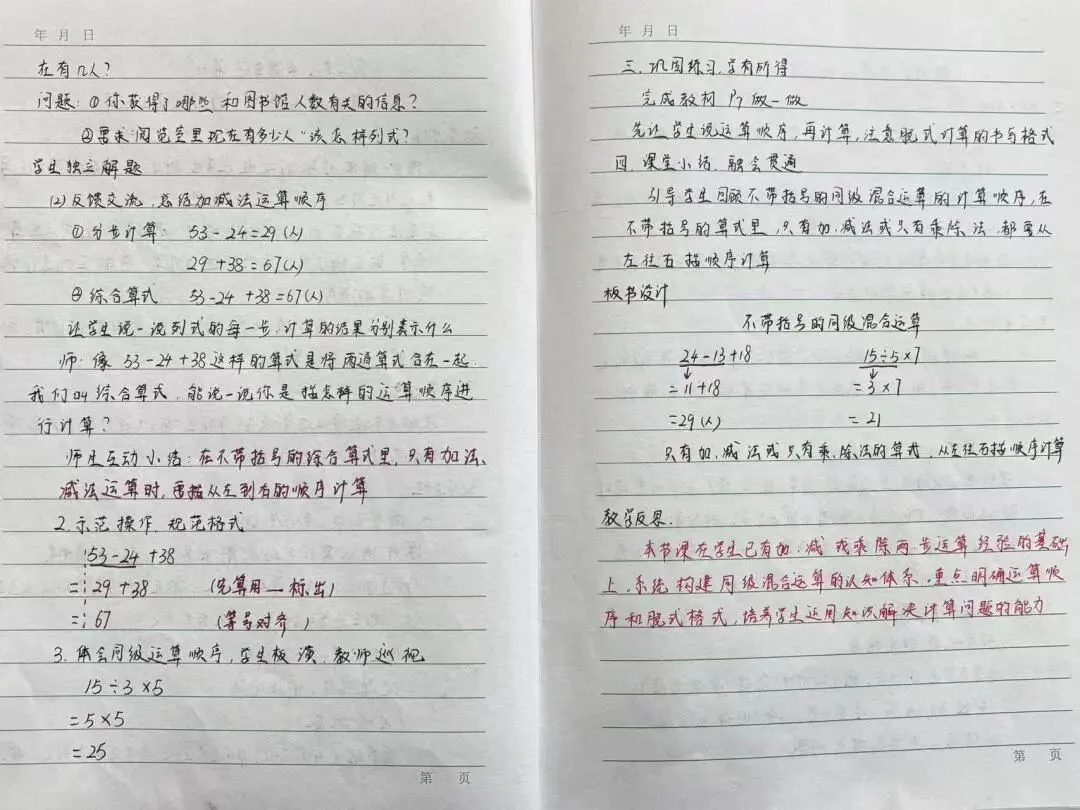 年 月 日
在有几人?
问题: ① 你获得了哪些 和图书馆人数有关的信息?
②要求"阅览室里现在有多少人"该怎样列式?
学生独立解题
(2) 反馈交流, 总结加减法运算顺序
① 分步计算: 53-24=29(人)
29+38=67(人)
② 综合算式 53-24+38=67(人)
让学生说一说列式的每一步.计算的结果分别表示什么
师: 像 53-24+38 这样的算式是将两道算式合在一起.
我们叫综合算式, 能说一说你是按怎样的运算顺序进
行计算?
师生互动小结: 在不带括号的综合算式里, 只有加法、
减法运算时, 要按从左到右的顺序计算
2. 示范操作, 规范格式
53-24+38
= 29+38 (先算用—标出)
= 67 (等号对齐)
3. 体会同级运算顺序, 学生板演, 教师巡视
15÷3×5
=5×5
=25
第 页
年 月 日
三. 巩固练习, 学有所得
完成教材 做一做
先让学生说运算顺序, 再计算, 注意脱式计算的书写格式
四. 课堂小结, 融会贯通
引导学生回顾不带括号的同级混合运算的计算顺序, 在
不带括号的算式里, 只有加.减法或只有乘除法, 都要从
左往右按顺序计算
板书设计
不带括号的同级混合运算
24-13+18 15÷5×7
=11+18 =3×7
=29(人) =21
只有加.减法或只有乘.除法的算式, 从左往右按顺序计算
教学反思:
本节课在学生已有加.减或乘除两步运算经验的基础
上, 系统构建同级混合运算的认知体系, 重点明确运算顺
序和脱式格式, 培养学生运用知识解决计算问题的能力
第 页